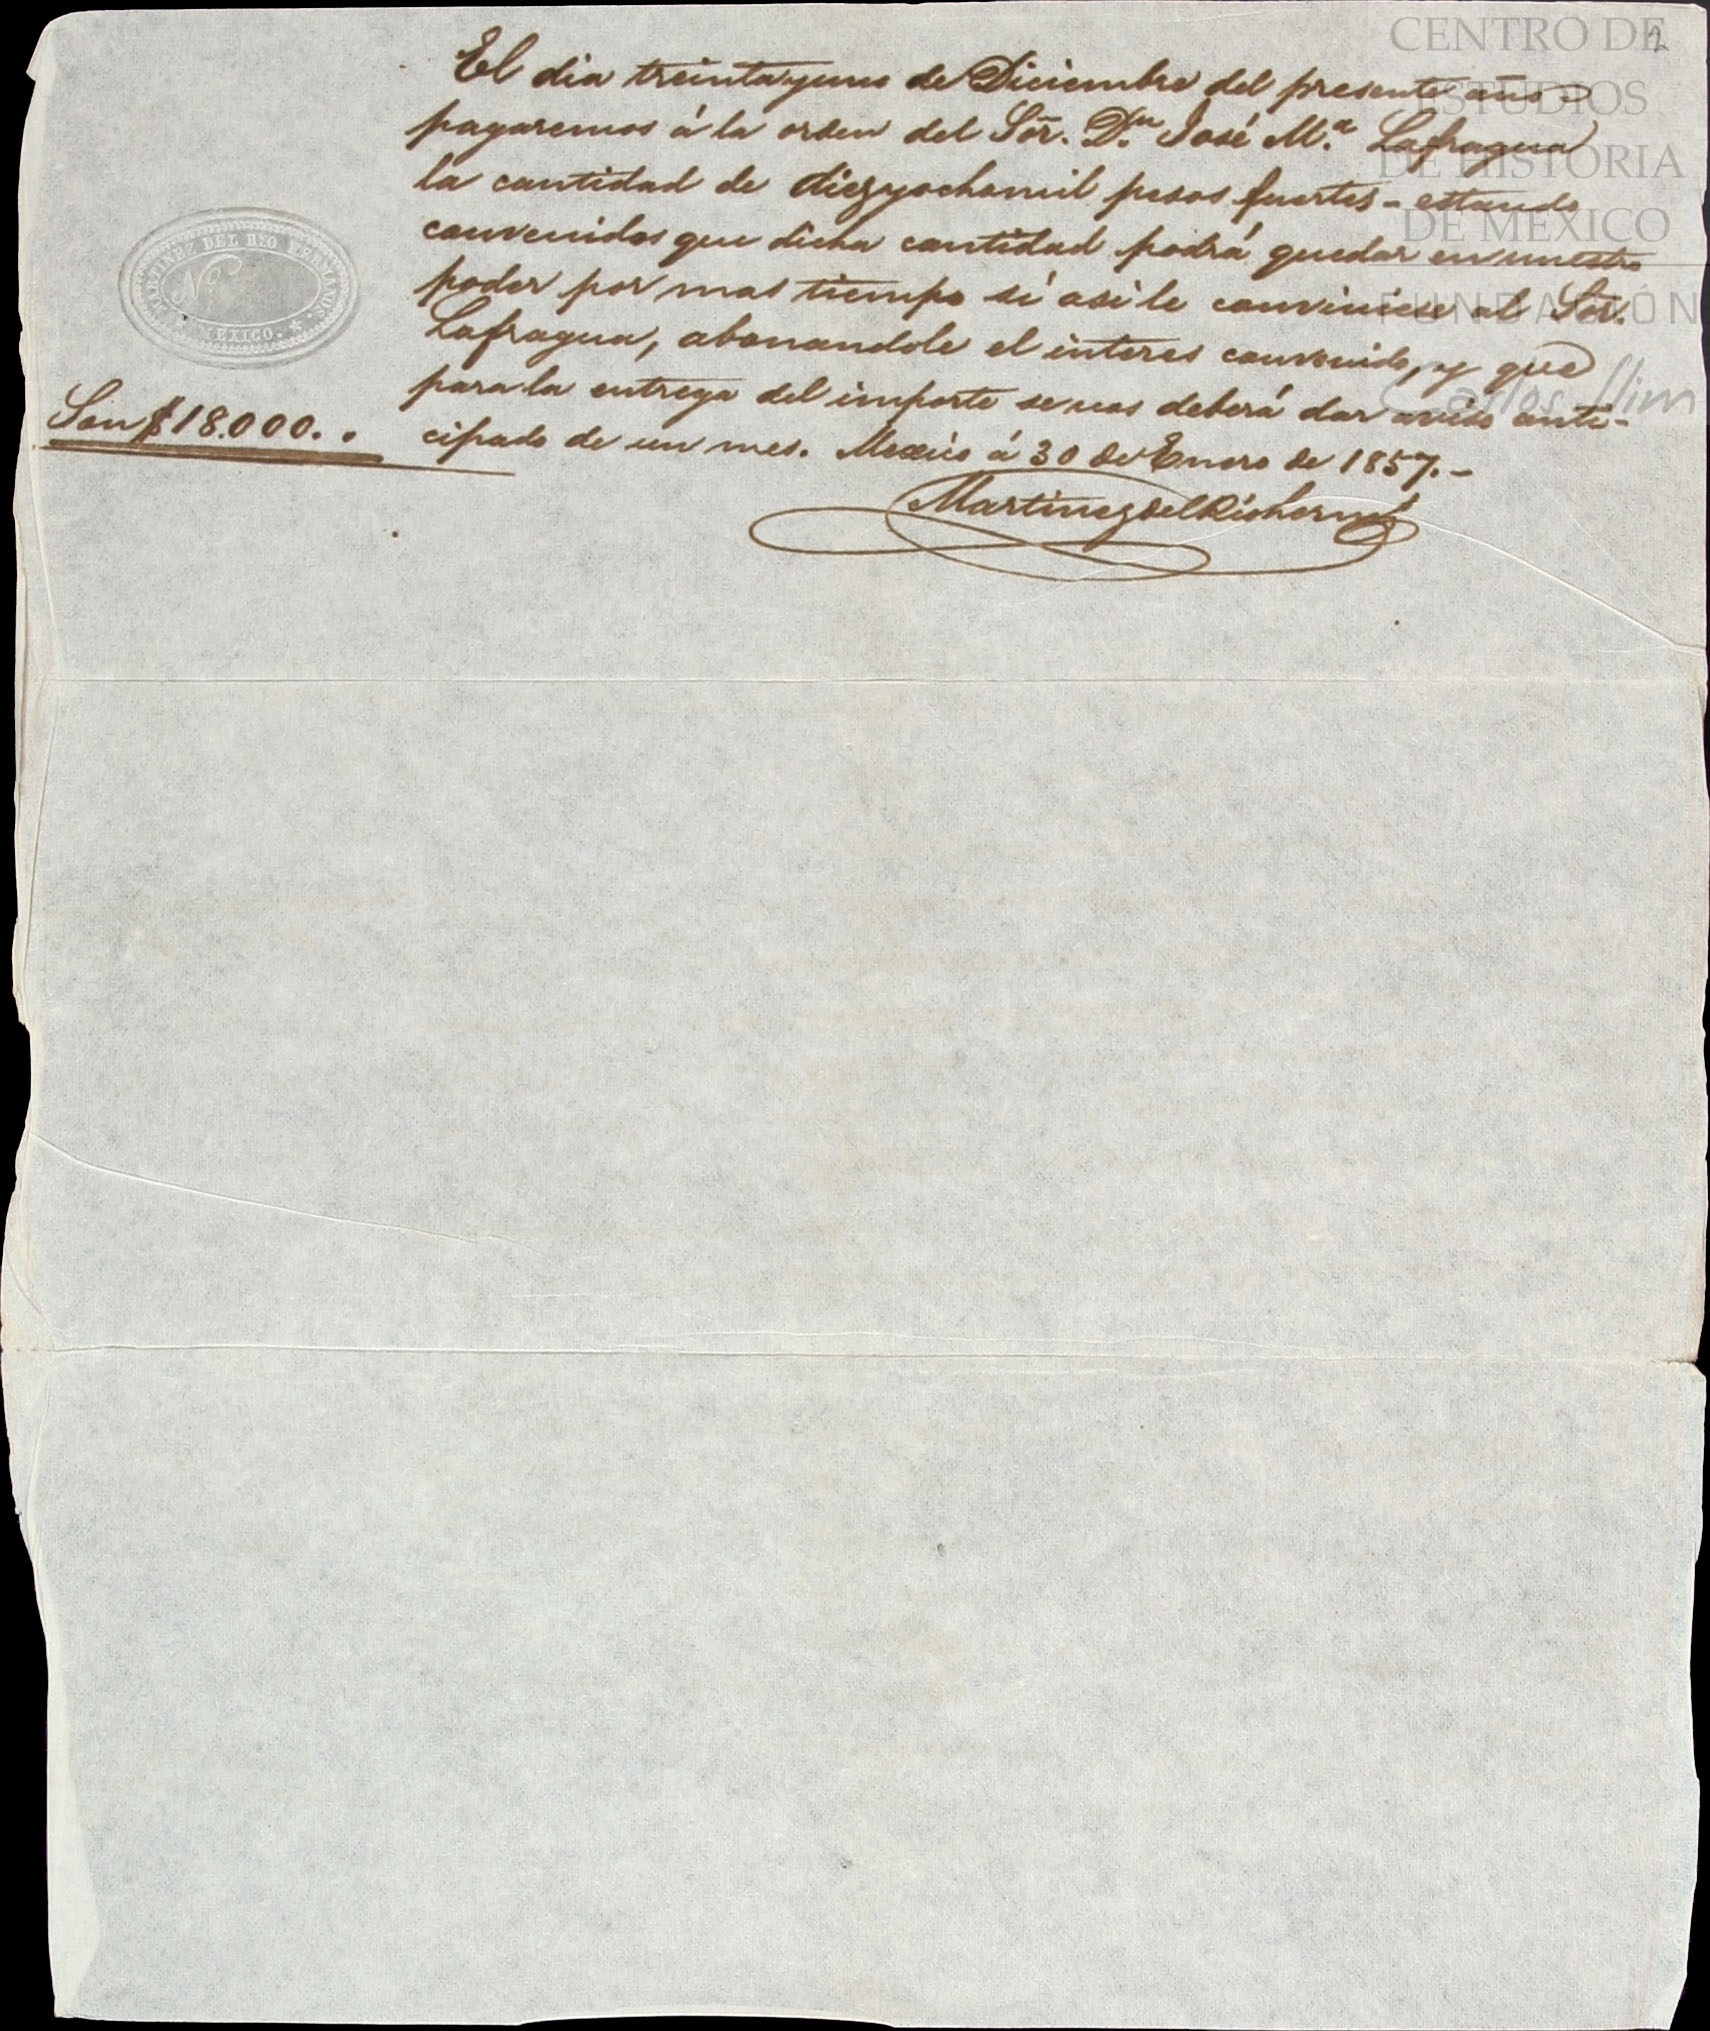 2
CENTRO DE
ESTUDIOS
DE HISTORIA
DE MEXICO
FUNDACIÓN
Carlos Slim
El dia treintayuno de Diciembre del presente año
pagaremos á la orden del Sōr. D.n José M.a Lafragua
la cantidad de diezyochomil pesos fuertes - estando
convenidos que dicha cantidad podrá quedar en nuestro
poder por mas tiempo si asi le conviniese al Sōr.
Lafragua, abonandole el interes convenido, y que
para la entrega del importe se nos deberá dar aviso anti-
cipado de un mes. Mexico á 30 de Enero de 1857.-
Martinez del Rio herms
MARTINEZ DEL RIO HERMANOS
No
MEXICO.
Son $18.000..